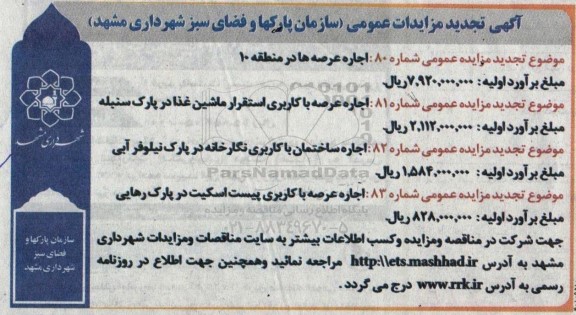 آگهی تجدید مزایدات عمومی (سازمان پارکها و فضای سبز شهرداری مشهد)
موضوع تجدید مزایده عمومی شماره ۸۰: اجاره عرصه ها در منطقه ۱۰
مبلغ برآورد اولیه: ۷،۹۲۰،۰۰۰،۰۰۰ ریال.
موضوع تجدید مزایده عمومی شماره ۸۱: اجاره عرصه با کاربری استقرار ماشین غذا در پارک سنبله
مبلغ برآورد اولیه: ۲،۱۱۲،۰۰۰،۰۰۰ ریال.
موضوع تجدید مزایده عمومی شماره ۸۲: اجاره ساختمان با کاربری نگارخانه در پارک نیلوفر آبی
مبلغ برآورد اولیه: ۱،۵۸۴،۰۰۰،۰۰۰ ریال.
موضوع تجدید مزایده عمومی شماره ۸۳: اجاره عرصه با کاربری پیست اسکیت در پارک رهایی
مبلغ برآورد اولیه: ۸۲۸،۰۰۰،۰۰۰ ریال.
جهت شرکت در مناقصه ومزایده وکسب اطلاعات بیشتر به سایت مناقصات ومزایدات شهرداری
مشهد به آدرس http:\\ets.mashhad.ir مراجعه نمائید وهمچنین جهت اطلاع در روزنامه
رسمی به آدرس www.rrk.ir درج می گردد.
شهرداری مشهد
سازمان پارکها و
فضای سبز
شهرداری مشهد
ParsNamadData
پایگاه اطلاع رسانی مناقصه و مزایده
۰۲۱-۸۸۳۴۹۶۷۰-۵